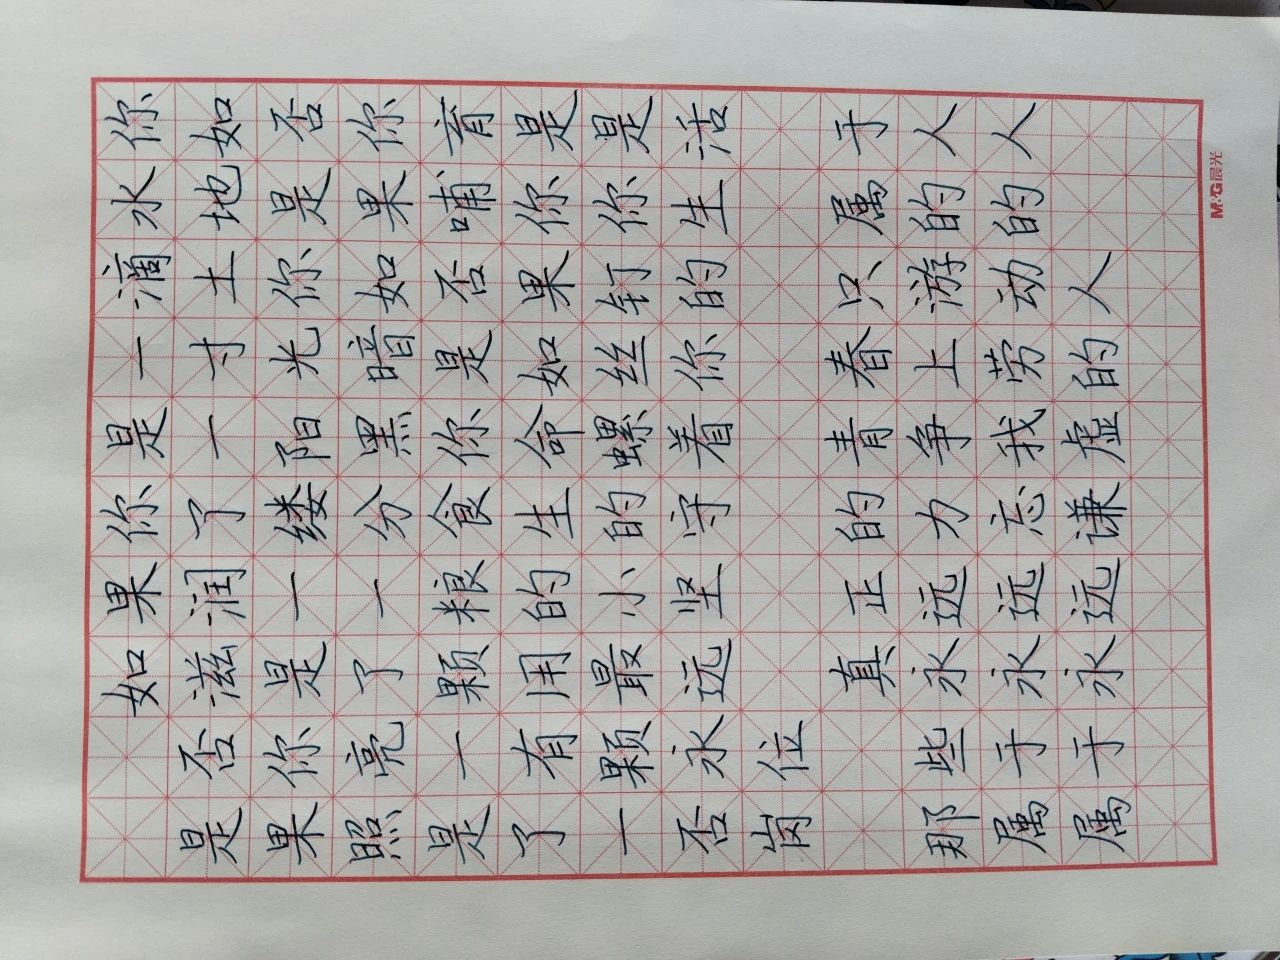 如果你是一滴水你
是否滋润了一寸土地如
果你是一缕阳光你是否
照亮了一分黑暗如果你
是一颗粮食你是否哺育
了有用的生命如果你是
一颗最小的螺丝钉你是
否永远坚守着你的生活
岗位
真正的青春只属于
那些永远力争上游的人
属于永远忘我劳动的人
属于永远谦虚的人
M&G晨光